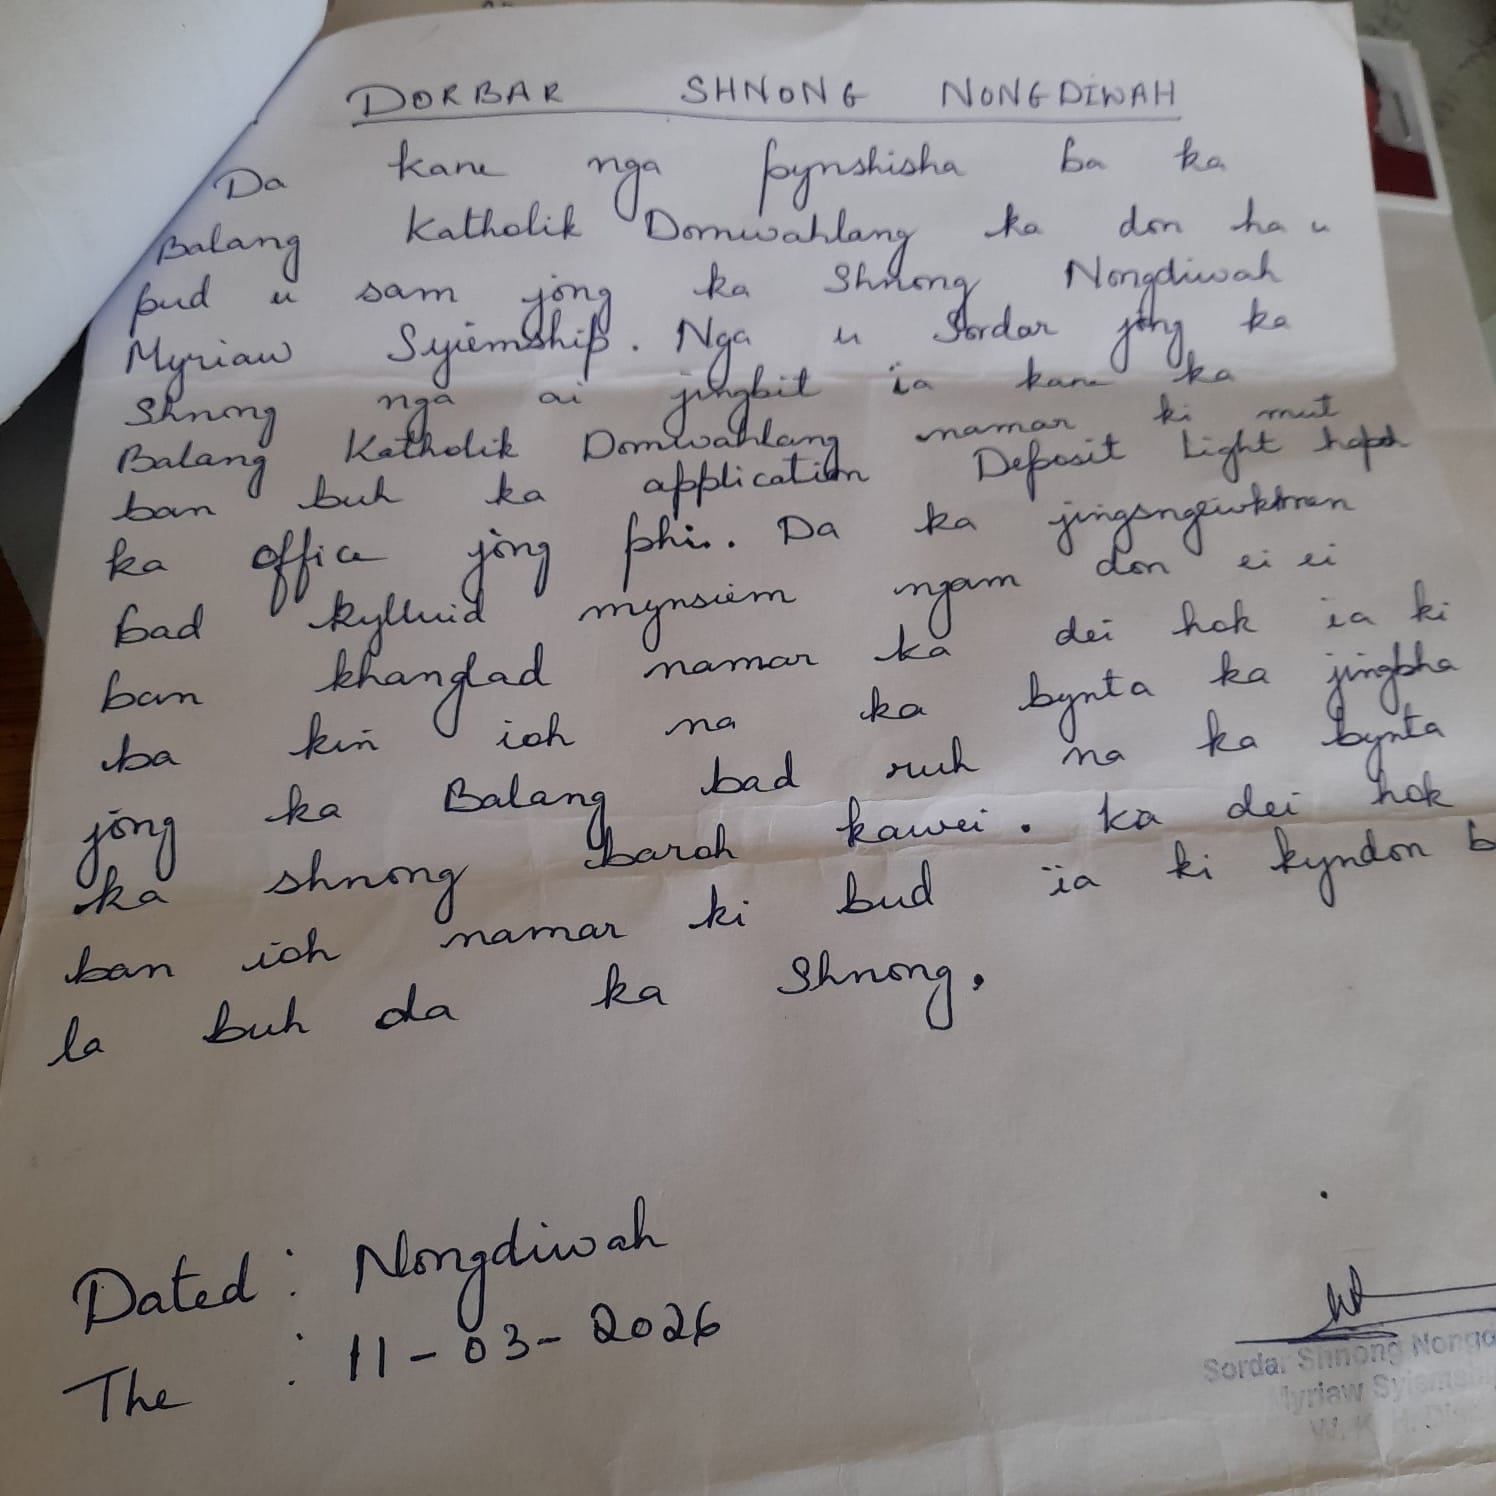 DORBAR SHNONG NONGDIWAH
Da kane nga pynshisha ba ka
Balang Katholik Domwahlang ka don ha u
pud u sam jong ka Shnong Nongdiwah
Myriaw Syiemship. Nga u Sordar jong ka
Shnong nga ai jingbit ia kane ka
Balang Katholik Domwahlang namar ki mut
ban buh ka application Deposit Light hapoh
ka office jong phi. Da ka jingsngewkhmen
bad kylluid mynsiem ngam don ei ei
ban khanglad namar ka dei hok ia ki
ba kiñ ioh na ka bynta ka jingbha
jong ka Balang bad ruh na ka bynta
ka shnong baroh kawei. Ka dei hok
ban ioh namar ki bud ïa ki kyndon b
la buh da ka Shnong.
Dated : Nongdiwah
The : 11-03-2026
Sordar Shnong Nongd
Myriaw Syiemsh
W. K. H. Di